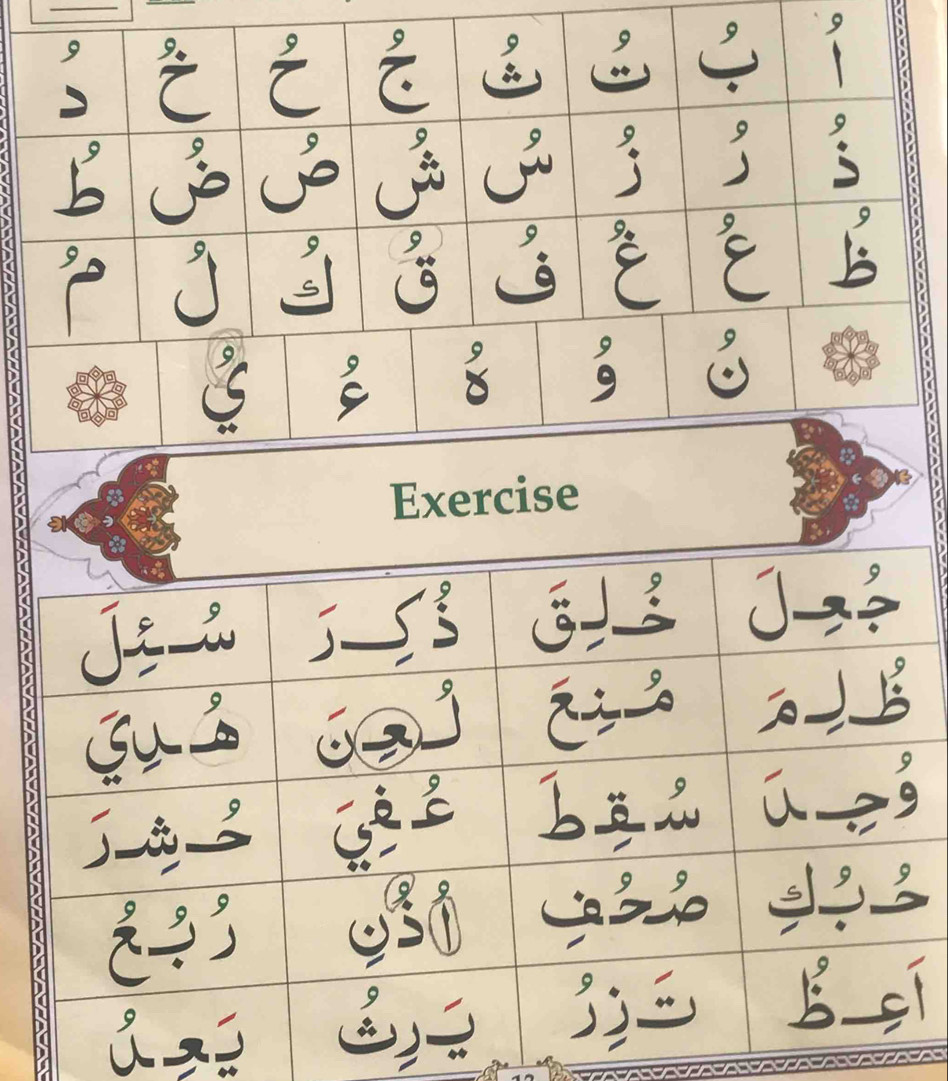 اُ بُ تُ ثُ جُ حُ خُ دُ
ذُ رُ زُ سُ شُ صُ ضُ طُ
ظُ عُ غُ فُ قُ كُ لُ مُ
نُ وُ هُ ءُ يُ
Exercise
جُعِلَ خُلِقَ ذُكِرَ سُئِلَ
ظُلِمَ مُنِعَ لُعِنَ هُدِيَ
وُجِدَ سُقِطَ عُفِيَ حُشِرَ
حُبُكِ صُحُفِ اُذُنِ رُبُعُ
اَعِظُ تَزِرُ يَرِثُ يَعِدُ